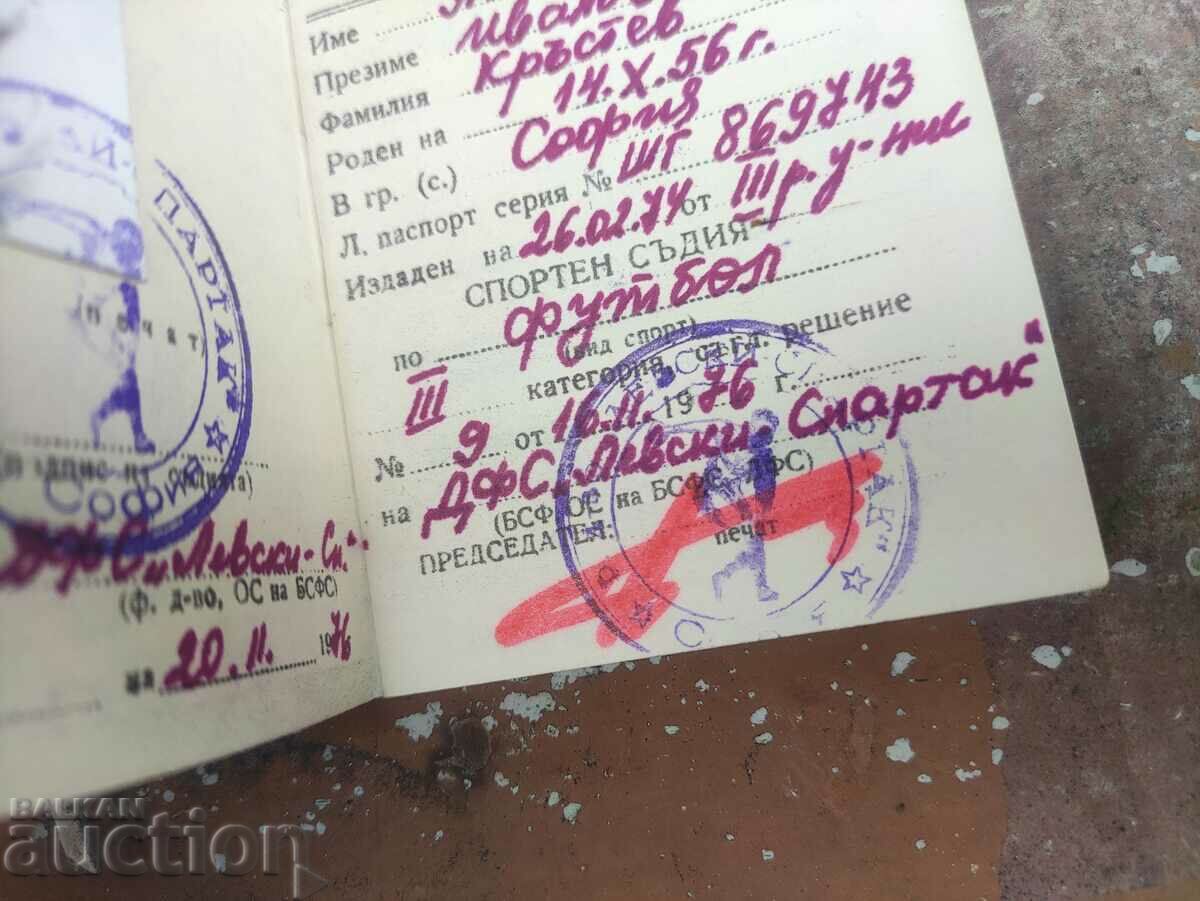 ПАРТАК"
СОФИЯ
(печат)
ДФС "Левски-Сп."
(ф. д-во, ОС на БСФС)
на 20.11. 1976
Име
Презиме
Фамилия Кръстев
Роден на 14.X.56 г.
В гр. (с.) София
Л. паспорт серия № ШГ 869743
Издаден на 26.02.74 от III р. у-ние
СПОРТЕН СЪДИЯ
по футбол
(вид спорт)
III категория, съгл. решение
№ 9 от 10.11. 1976 г.
на ДФС "Левски-Спартак"
(БСФС, ОС на БСФС, ДФС)
ПРЕДСЕДАТЕЛ:
печат
BALKAN
auction